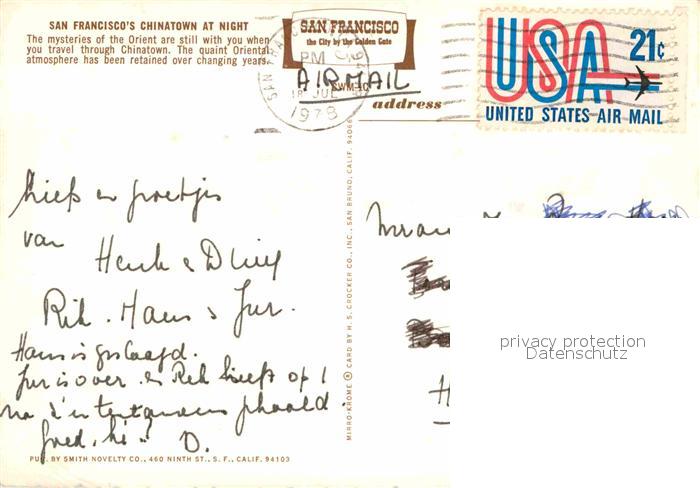 SAN FRANCISCO'S CHINATOWN AT NIGHT
The mysteries of the Orient are still with you when
you travel through Chinatown. The quaint Oriental
atmosphere has been retained over changing years.
SAN FRANCISCO
the City by the Golden Gate
PM
18 JUL
1978
AIRMAIL
address
USA 21c
UNITED STATES AIR MAIL
liefs en groetjes
van
Henk &
Rik. Hans & Jur.
Hans is geslaagd.
Jur is over en Rik heeft op 1
na z'n tentamens gehaald.
Goed, hè? D.
MIRRO-KROME ® CARD BY H. S. CROCKER CO., INC., SAN BRUNO, CALIF. 94066
PUB. BY SMITH NOVELTY CO., 460 NINTH ST., S. F., CALIF. 94103
privacy protection
Datenschutz